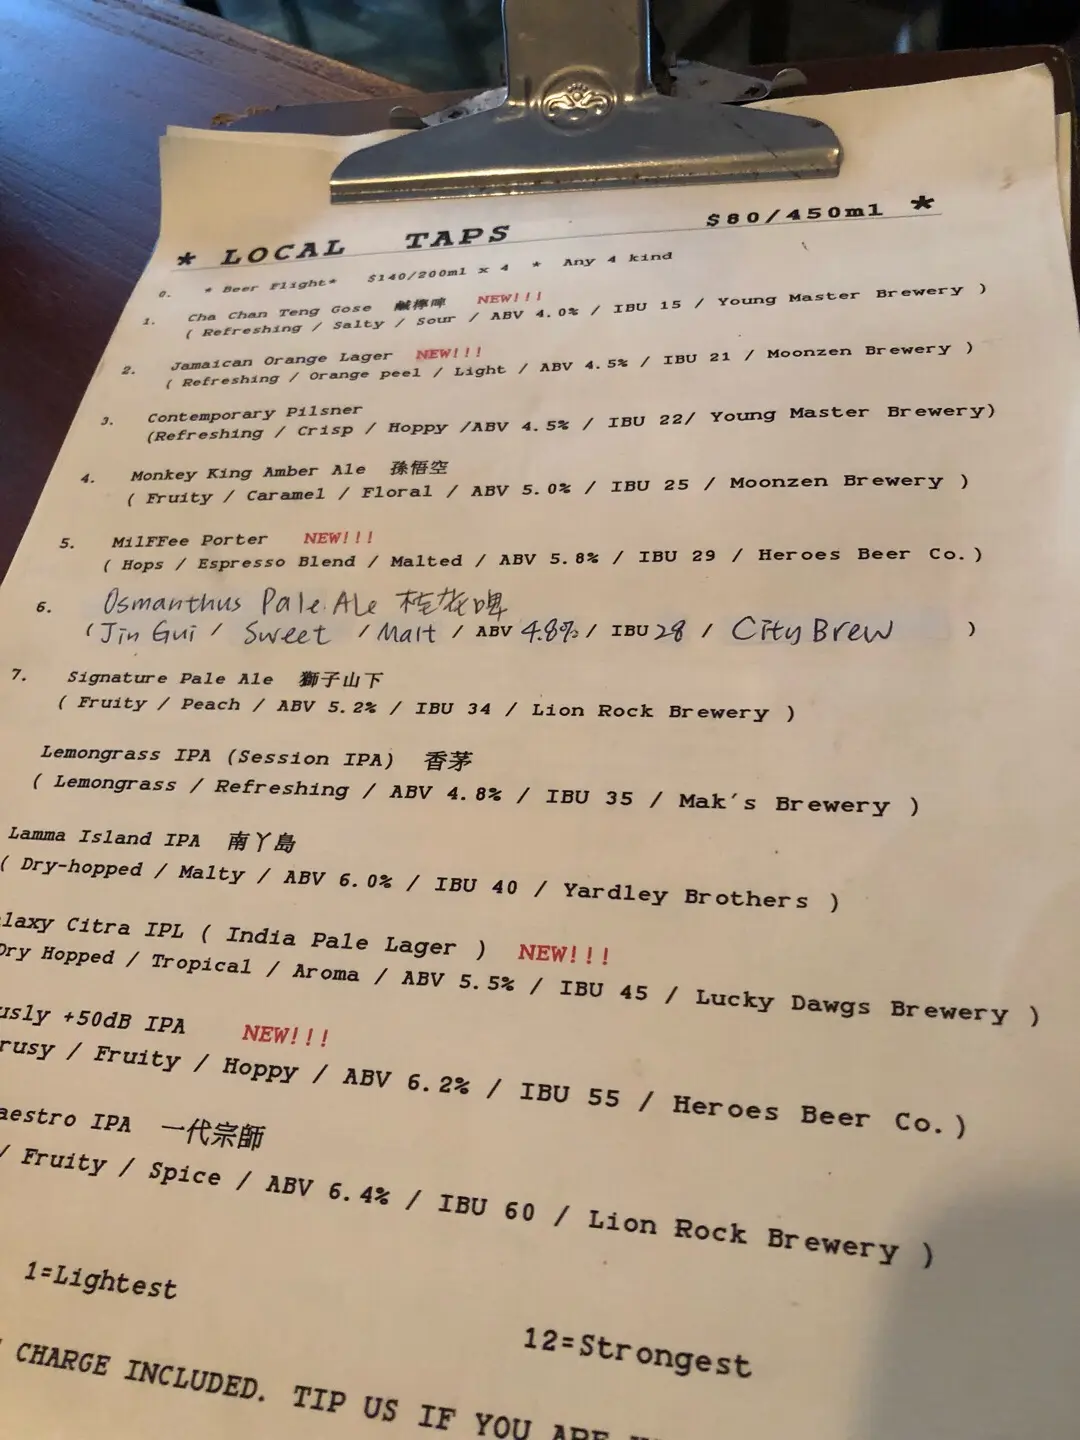 * LOCAL TAPS $80/450ml *
0. * Beer Flight* $140/200ml x 4 * Any 4 kind
1. Cha Chan Teng Gose 鹹檸啤 NEW!!!
( Refreshing / Salty / Sour / ABV 4.0% / IBU 15 / Young Master Brewery )
2. Jamaican Orange Lager NEW!!!
( Refreshing / Orange peel / Light / ABV 4.5% / IBU 21 / Moonzen Brewery )
3. Contemporary Pilsner
(Refreshing / Crisp / Hoppy /ABV 4.5% / IBU 22/ Young Master Brewery)
4. Monkey King Amber Ale 孫悟空
( Fruity / Caramel / Floral / ABV 5.0% / IBU 25 / Moonzen Brewery )
5. MilFFee Porter NEW!!!
( Hops / Espresso Blend / Malted / ABV 5.8% / IBU 29 / Heroes Beer Co.)
6. Osmanthus Pale Ale 桂花啤
(Jin Gui / Sweet / Malt / ABV 4.8% / IBU 28 / City Brew )
7. Signature Pale Ale 獅子山下
( Fruity / Peach / ABV 5.2% / IBU 34 / Lion Rock Brewery )
Lemongrass IPA (Session IPA) 香茅
( Lemongrass / Refreshing / ABV 4.8% / IBU 35 / Mak's Brewery )
Lamma Island IPA 南丫島
( Dry-hopped / Malty / ABV 6.0% / IBU 40 / Yardley Brothers )
laxy Citra IPL ( India Pale Lager ) NEW!!!
Dry Hopped / Tropical / Aroma / ABV 5.5% / IBU 45 / Lucky Dawgs Brewery )
usly +50dB IPA NEW!!!
rusy / Fruity / Hoppy / ABV 6.2% / IBU 55 / Heroes Beer Co.)
aestro IPA 一代宗師
/ Fruity / Spice / ABV 6.4% / IBU 60 / Lion Rock Brewery )
1=Lightest
12=Strongest
CHARGE INCLUDED. TIP US IF YOU ARE